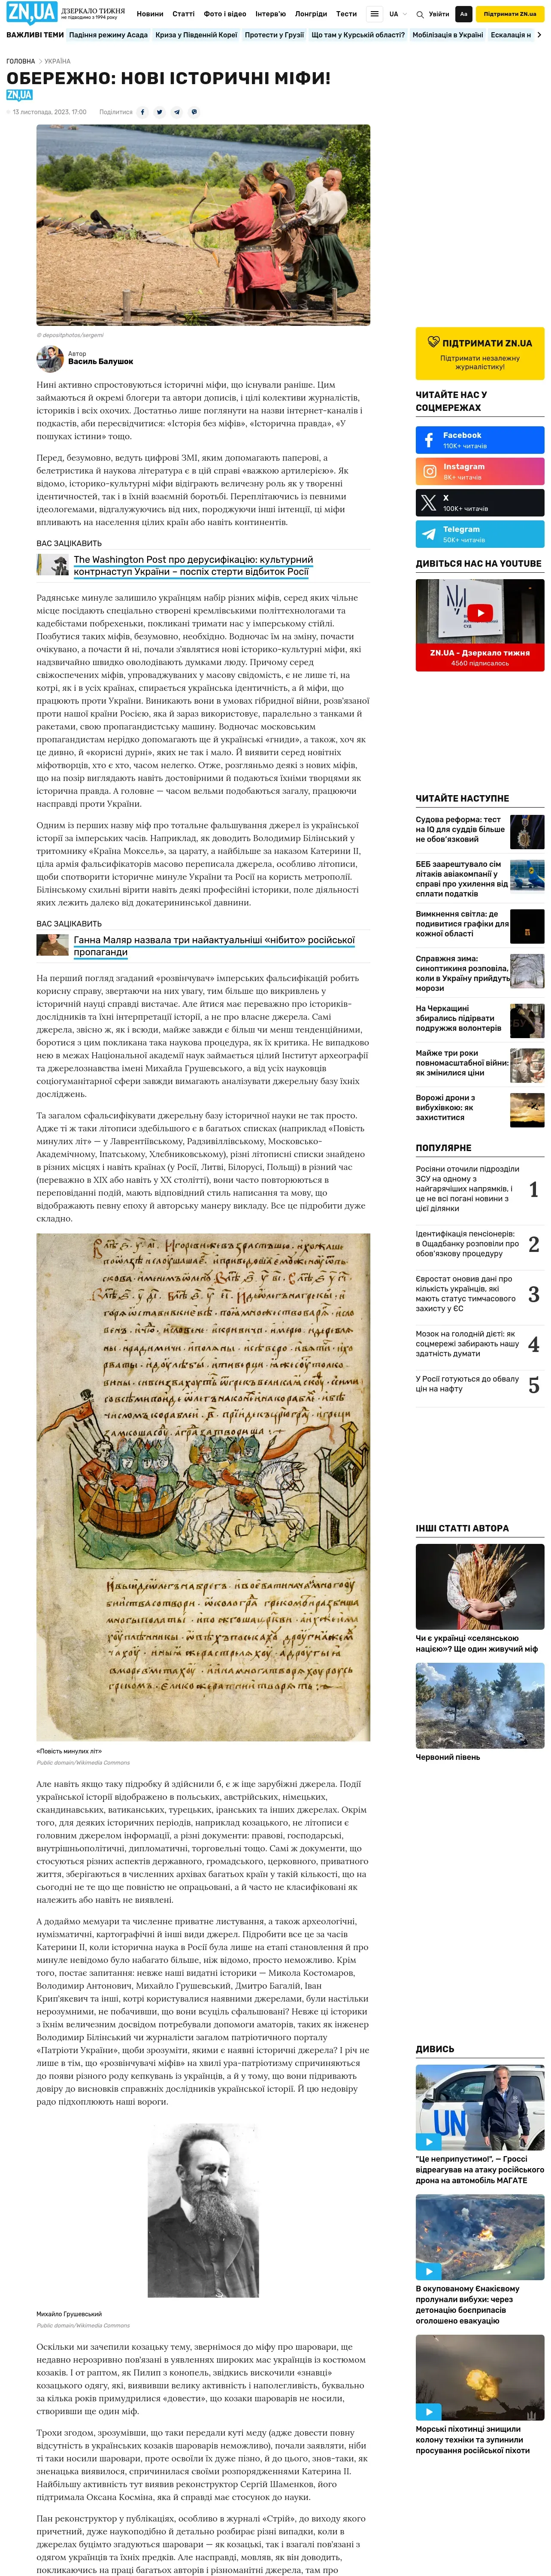 ZN,UA
ДЗЕРКАЛО ТИЖНЯ
не підводимо з 1994 року
Новини Статті Фото і відео Інтерв'ю Лонгріди Тести
UA
Увійти
Аа
Підтримати ZN.ua
ВАЖЛИВІ ТЕМИ Падіння режиму Асада Криза у Південній Кореї Протести у Грузії Що там у Курській області? Мобілізація в Україні Ескалація н
ГОЛОВНА УКРАЇНА
ОБЕРЕЖНО: НОВІ ІСТОРИЧНІ МІФИ!
ZN,UA
13 листопада, 2023, 17:00 Поділитися
© depositphotos/sergemi
Автор
Василь Балушок
Нині активно спростовуються історичні міфи, що існували раніше. Цим
займаються й окремі блогери та автори дописів, і цілі колективи журналістів,
істориків і всіх охочих. Достатньо лише поглянути на назви інтернет-каналів і
подкастів, аби пересвідчитися: «Історія без міфів», «Історична правда», «У
пошуках істини» тощо.
Перед, безумовно, ведуть цифрові ЗМІ, яким допомагають паперові, а
белетристика й наукова література є в цій справі «важкою артилерією». Як
відомо, історико-культурні міфи відіграють величезну роль як у творенні
ідентичностей, так і в їхній взаємній боротьбі. Переплітаючись із певними
ідеологемами, відгалужуючись від них, породжуючи інші інтенції, ці міфи
впливають на населення цілих країн або навіть континентів.
ВАС ЗАЦІКАВИТЬ
The Washington Post про дерусифікацію: культурний
контрнаступ України – поспіх стерти відбиток Росії
Радянське минуле залишило українцям набір різних міфів, серед яких чільне
місце посідають спеціально створені кремлівськими політтехнологами та
кадебістами побрехеньки, покликані тримати нас у імперському стійлі.
Позбутися таких міфів, безумовно, необхідно. Водночас їм на зміну, почасти
очікувано, а почасти й ні, почали з'являтися нові історико-культурні міфи, які
надзвичайно швидко оволодівають думками люду. Причому серед
свіжоспечених міфів, упроваджуваних у масову свідомість, є не лише ті, на
котрі, як і в усіх країнах, спирається українська ідентичність, а й міфи, що
працюють проти України. Виникають вони в умовах гібридної війни, розв'язаної
проти нашої країни Росією, яка й зараз використовує, паралельно з танками й
ракетами, свою пропагандистську машину. Водночас московським
пропагандистам нерідко допомагають ще й українські «гниди», а також, хоч як
це дивно, й «корисні дурні», яких не так і мало. Й виявити серед новітніх
міфотворців, хто є хто, часом нелегко. Отже, розгляньмо деякі з нових міфів,
що на позір виглядають навіть достовірними й подаються їхніми творцями як
історична правда. А головне — часом вельми подобаються загалу, працюючи
насправді проти України.
Одним із перших назву міф про тотальне фальшування джерел із української
історії за імперських часів. Наприклад, як доводить Володимир Білінський у
тритомнику «Країна Моксель», за царату, а найбільше за наказом Катерини ІІ,
ціла армія фальсифікаторів масово переписала джерела, особливо літописи,
щоби спотворити історичне минуле України та Росії на користь метрополії.
Білінському схильні вірити навіть деякі професійні історики, поле діяльності
яких лежить далеко від докатерининської давнини.
ВАС ЗАЦІКАВИТЬ
Ганна Маляр назвала три найактуальніші «нібито» російської
пропаганди
На перший погляд згаданий «розвінчувач» імперських фальсифікацій робить
корисну справу, звертаючи на них увагу, тим більше що викривлень у
історичній науці справді вистачає. Але йтися має переважно про істориків-
дослідників та їхні інтерпретації історії, а не про власне джерела. Самі
джерела, звісно ж, як і всюди, майже завжди є більш чи менш тенденційними,
боротися з цим покликана така наукова процедура, як їх критика. Не випадково
нею в межах Національної академії наук займається цілий Інститут археографії
та джерелознавства імені Михайла Грушевського, а від усіх науковців
соціогуманітарної сфери завжди вимагають аналізувати джерельну базу їхніх
досліджень.
Та загалом сфальсифікувати джерельну базу історичної науки не так просто.
Адже ті ж таки літописи здебільшого є в багатьох списках (наприклад «Повість
минулих літ» — у Лаврентіївському, Радзивіллівському, Московсько-
Академічному, Іпатському, Хлебниковському), різні літописні списки знайдено
в різних місцях і навіть країнах (у Росії, Литві, Білорусі, Польщі) в різний час
(переважно в ХІХ або навіть у ХХ столітті), вони часто повторюються в
переповіданні подій, мають відповідний стиль написання та мову, що
відображають певну епоху й авторську манеру викладу. Все це підробити дуже
складно.
«Повість минулих літ»
Public domain/Wikimedia Commons
Але навіть якщо таку підробку й здійснили б, є ж іще зарубіжні джерела. Події
української історії відображено в польських, австрійських, німецьких,
скандинавських, ватиканських, турецьких, іранських та інших джерелах. Окрім
того, для деяких історичних періодів, наприклад козацького, не літописи є
головним джерелом інформації, а різні документи: правові, господарські,
внутрішньополітичні, дипломатичні, торговельні тощо. Самі ж документи, що
стосуються різних аспектів державного, громадського, церковного, приватного
життя, зберігаються в численних архівах багатьох країн у такій кількості, що на
сьогодні не те що ще повністю не опрацьовані, а й часто не класифіковані як
належить або навіть не виявлені.
А додаймо мемуари та численне приватне листування, а також археологічні,
нумізматичні, картографічні й інші види джерел. Підробити все це за часів
Катерини ІІ, коли історична наука в Росії була лише на етапі становлення й про
минуле невідомо було набагато більше, ніж відомо, просто неможливо. Крім
того, постає запитання: невже наші видатні історики — Микола Костомаров,
Володимир Антонович, Михайло Грушевський, Дмитро Багалій, Іван
Крип'якевич та інші, котрі користувалися наявними джерелами, були настільки
нерозумними, не побачивши, що вони всуціль сфальшовані? Невже ці історики
з їхнім величезним досвідом потребували допомоги аматорів, таких як інженер
Володимир Білінський чи журналісти загалом патріотичного порталу
«Патріоти України», щоби зрозуміти, якими є наявні історичні джерела? І річ не
лише в тім, що «розвінчувачі міфів» на хвилі ура-патріотизму спричиняються
до появи різного роду кепкувань із українців, а й у тому, що вони підривають
довіру до висновків справжніх дослідників української історії. Й цю недовіру
радо підхоплюють наші вороги.
Михайло Грушевський
Public domain/Wikimedia Commons
Оскільки ми зачепили козацьку тему, звернімося до міфу про шаровари, ще
недавно нерозривно пов'язані в уявленнях широких мас українців із костюмом
козаків. І от раптом, як Пилип з конопель, звідкись вискочили «знавці»
козацького одягу, які, виявивши велику активність і наполегливість, буквально
за кілька років примудрилися «довести», що козаки шароварів не носили,
створивши ще один міф.
Трохи згодом, зрозумівши, що таки передали куті меду (адже довести повну
відсутність в українських козаків шароварів неможливо), почали заявляти, ніби
ті таки носили шаровари, проте освоїли їх дуже пізно, й до цього, знов-таки, як
зненацька виявилося, спричинилася своїми розпорядженнями Катерина ІІ.
Найбільшу активність тут виявив реконструктор Сергій Шаменков, його
підтримала Оксана Косміна, яка й справді має стосунок до науки.
Пан реконструктор у публікаціях, особливо в журналі «Стрій», до виходу якого
причетний, дуже наукоподібно й детально розбирає різні випадки, коли в
джерелах буцімто згадуються шаровари — як козацькі, так і взагалі пов'язані з
одягом українців та їхніх предків. Але насправді, мовляв, як він доводить,
покликаючись на праці багатьох авторів і різноманітні джерела, там про
ПІДТРИМАТИ ZN.UA
Підтримати незалежну
журналістику!
ЧИТАЙТЕ НАС У
СОЦМЕРЕЖАХ
Facebook
110K+ читачів
Instagram
8K+ читачів
X
100K+ читачів
Telegram
50K+ читачів
ДИВІТЬСЯ НАС НА YOUTUBE
ZN.UA - Дзеркало тижня
4560 підписалось
ЧИТАЙТЕ НАСТУПНЕ
Судова реформа: тест
на IQ для суддів більше
не обов'язковий
БЕБ заарештувало сім
літаків авіакомпанії у
справі про ухилення від
сплати податків
Вимкнення світла: де
подивитися графіки для
кожної області
Справжня зима:
синоптикиня розповіла,
коли в Україну прийдуть
морози
На Черкащині
збирались підірвати
подружжя волонтерів
Майже три роки
повномасштабної війни:
як змінилися ціни
Ворожі дрони з
вибухівкою: як
захиститися
ПОПУЛЯРНЕ
Росіяни оточили підрозділи
ЗСУ на одному з
найгарячіших напрямків, і
це не всі погані новини з
цієї ділянки
1
Ідентифікація пенсіонерів:
в Ощадбанку розповіли про
обов'язкову процедуру
2
Євростат оновив дані про
кількість українців, які
мають статус тимчасового
захисту у ЄС
3
Мозок на голодній дієті: як
соцмережі забирають нашу
здатність думати
4
У Росії готуються до обвалу
цін на нафту
5
ІНШІ СТАТТІ АВТОРА
Чи є українці «селянською
нацією»? Ще один живучий міф
Червоний півень
ДИВИСЬ
UN
"Це неприпустимо!", — Гроссі
відреагував на атаку російського
дрона на автомобіль МАГАТЕ
В окупованому Єнакієвому
пролунали вибухи: через
детонацію боєприпасів
оголошено евакуацію
Морські піхотинці знищили
колону техніки та зупинили
просування російської піхоти